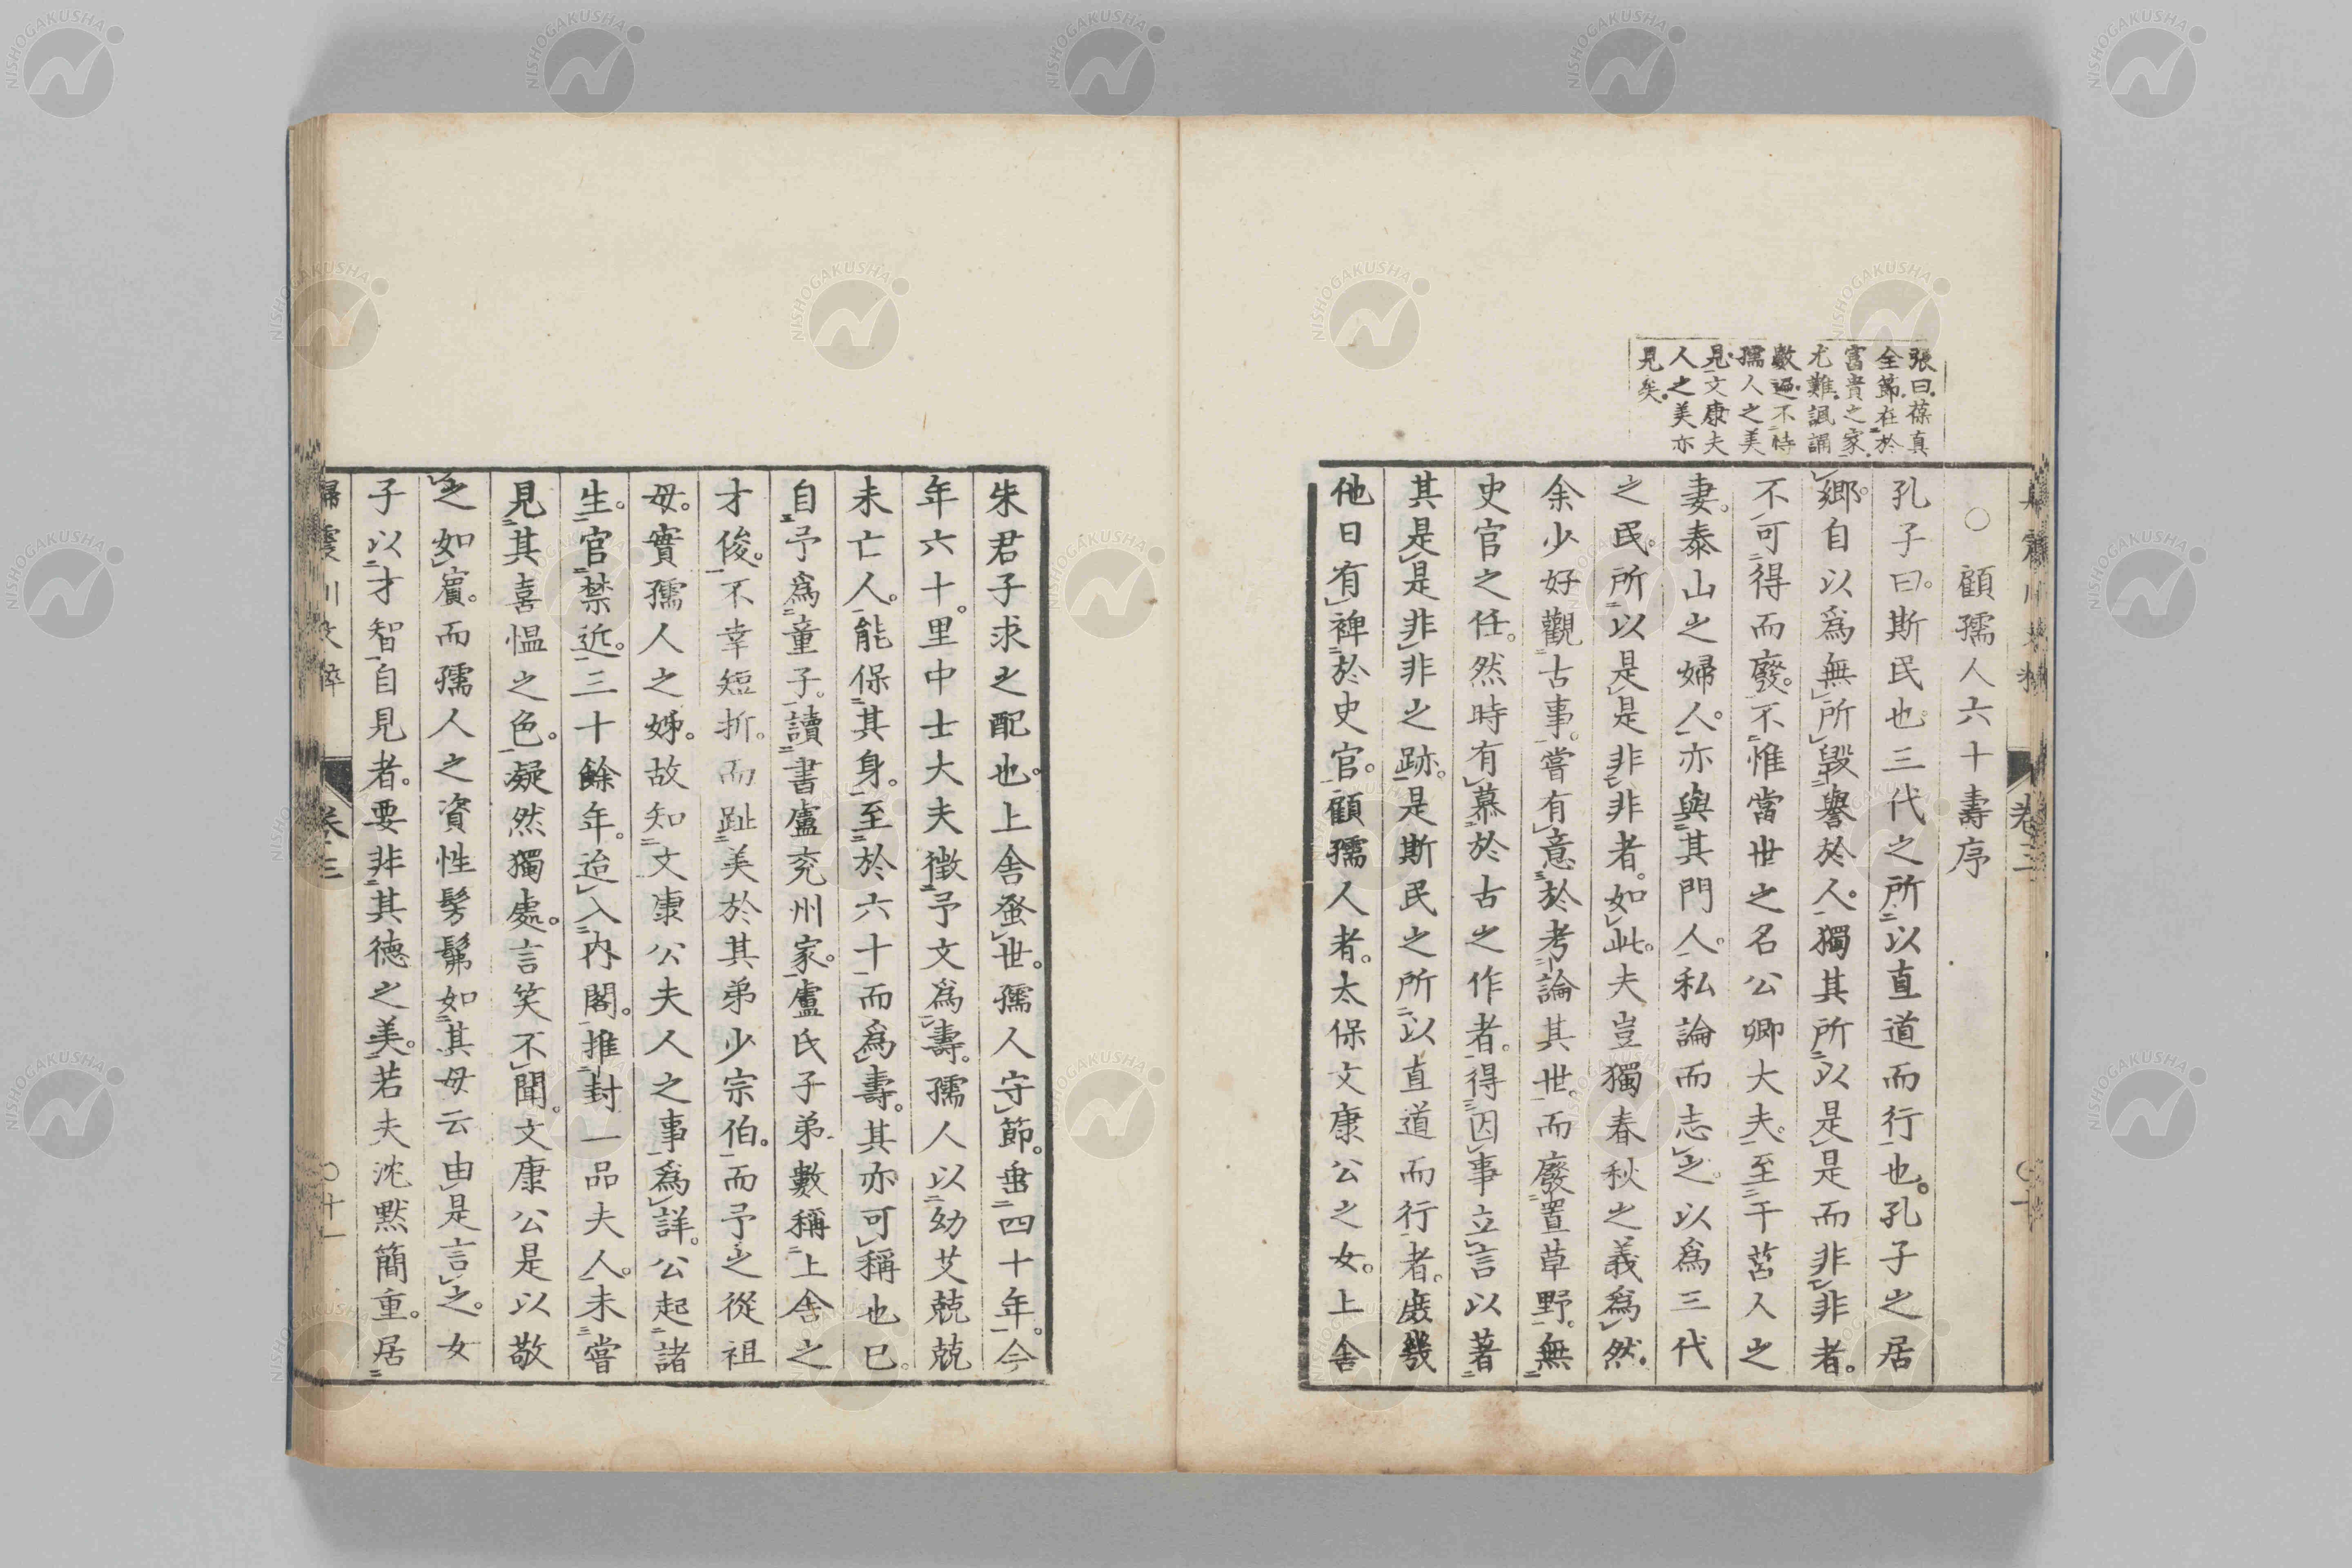 張曰葆真
全節在於
富貴之家
尤難諷誦
數過不恃
孺人之美
見文康夫
人之美亦
見矣
○顧孺人六十壽序
孔子曰。斯民也。三代之所以直道而行也。孔子之居
鄉。自以爲無所毀譽於人。獨其所以是是而非非者。
不可得而廢。不惟當世之名公卿大夫。至于莒人之
妻。泰山之婦人。亦與其門人。私論而志之。以爲三代
之民。所以是是非非者。如此。夫豈獨春秋之義爲然。
余少好觀古事。嘗有意於考論其世。而廢置草野。無
史官之任。然時有慕於古之作者。得因事立言以著
其是是非非之跡。是斯民之所以直道而行者。庻幾
他日有裨於史官。顧孺人者。太保文康公之女。上舍
朱君子求之配也。上舍蚤世。孺人守節。垂四十年。今
年六十。里中士大夫徵予文爲壽。孺人以幼艾兢兢
未亡人。能保其身。至於六十而爲壽。其亦可稱也已。
自予爲童子。讀書盧兖州家。盧氏子弟。數稱上舍之
才俊。不幸短折。而趾美於其弟少宗伯。而予之從祖
母。實孺人之姊。故知文康公夫人之事爲詳。公起諸
生。官禁近。三十餘年。迨入内閣。推封一品夫人。未嘗
見其喜愠之色。凝然獨處。言笑不聞。文康公是以敬
之如賓。而孺人之資性髣髴如其母云。由是言之。女
子以才智自見者。要非其德之美。若夫沈默簡重。居
歸震川文粹
卷三
○十一
卷三